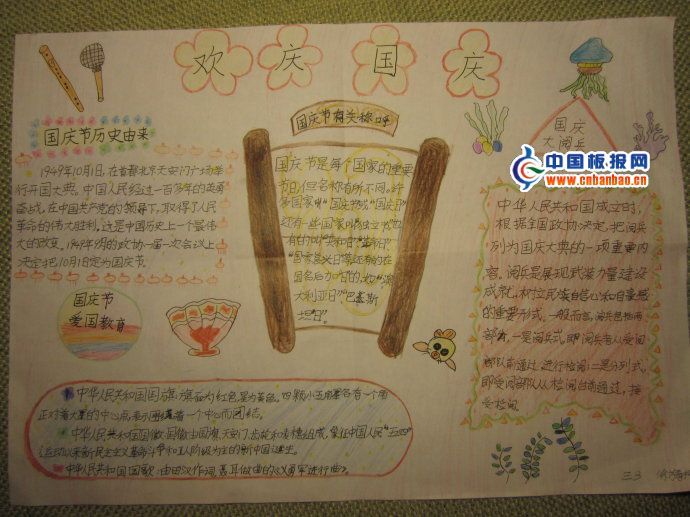 欢庆国庆
国庆节历史由来
1949年10月1日,在首都北京天安门广场举
行开国大典。中国人民经过一百多年的英勇
奋战,在中国共产党的领导下,取得了人民
革命的伟大胜利,这是中国历史上一个最伟
大的改变。1949年
的政协一届一次会议上
决定把10月1日定为国庆节。
国庆节
爱国教育
国庆节有关称呼
国庆节是每个国家的重要
节日,但名称有所不同。许
多国家叫“国庆节”或“国庆日”
还有一些国家叫“独立节”也
有的叫“共和日”“革命日”
“国家复兴日”等还有的在
国名后加“日”的,如“澳
大利亚日”“巴基斯
坦日”。
国庆
大阅兵
中国板报网
www.cnbanbao.cn
中华人民共和国成立时,
根据全国政协决定,把阅兵
列为国庆大典的一项重要内
容。阅兵是展现武装力量建设
成就,树立民族自信心和自豪感
的重要形式。一般而言,阅兵包括两
部分,一是阅兵式,即阅兵者从受阅
部队前通过,进行检阅;二是分列式,
即受阅部队从检阅台前通过,接
受检阅
中华人民共和国国旗:旗面为红色,星为黄色。四颗小五角星各有一个角
正对着大星的中心点,表示围绕着一个中心而团结。
中华人民共和国国徽:国徽由国旗、天安门、齿轮和麦穗组成,象征中国人民“五四”
运动以来新民主主义革命斗争和工人阶级为主的新中国诞生。
中华人民共和国国歌:由田汉作词,聂耳作曲的《义勇军进行曲》。
三3